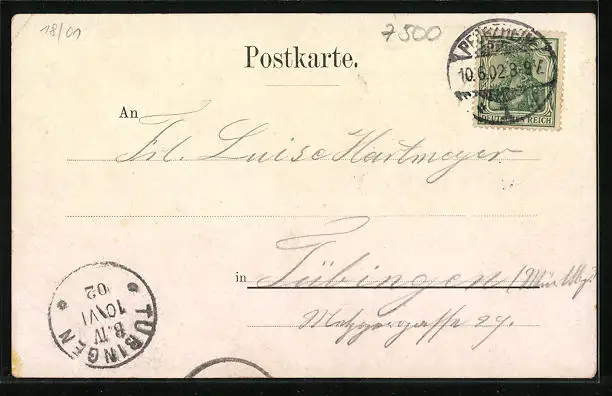 18/01
7500
Postkarte.
PFORZHEIM
10.6.02.8-9
DEUTSCHES REICH
An
Frl. Luise Hartmeyer
in Tübingen
Metzgergasse 29.
TÜBINGEN
B.IV
10\VI
02